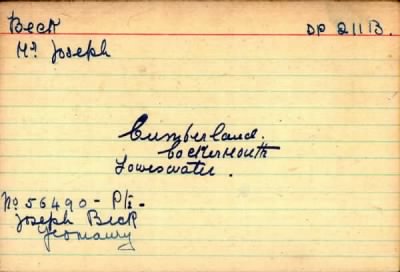 Beck DP 211B.
Mr Joseph
Cumberland.
Cockermouth
Loweswater.
No 56490 - Pte -
Joseph Beck
Yeomanry